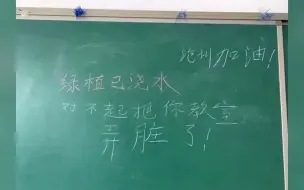 沧州加油！
绿植已浇水
对不起把你教室
弄脏了！